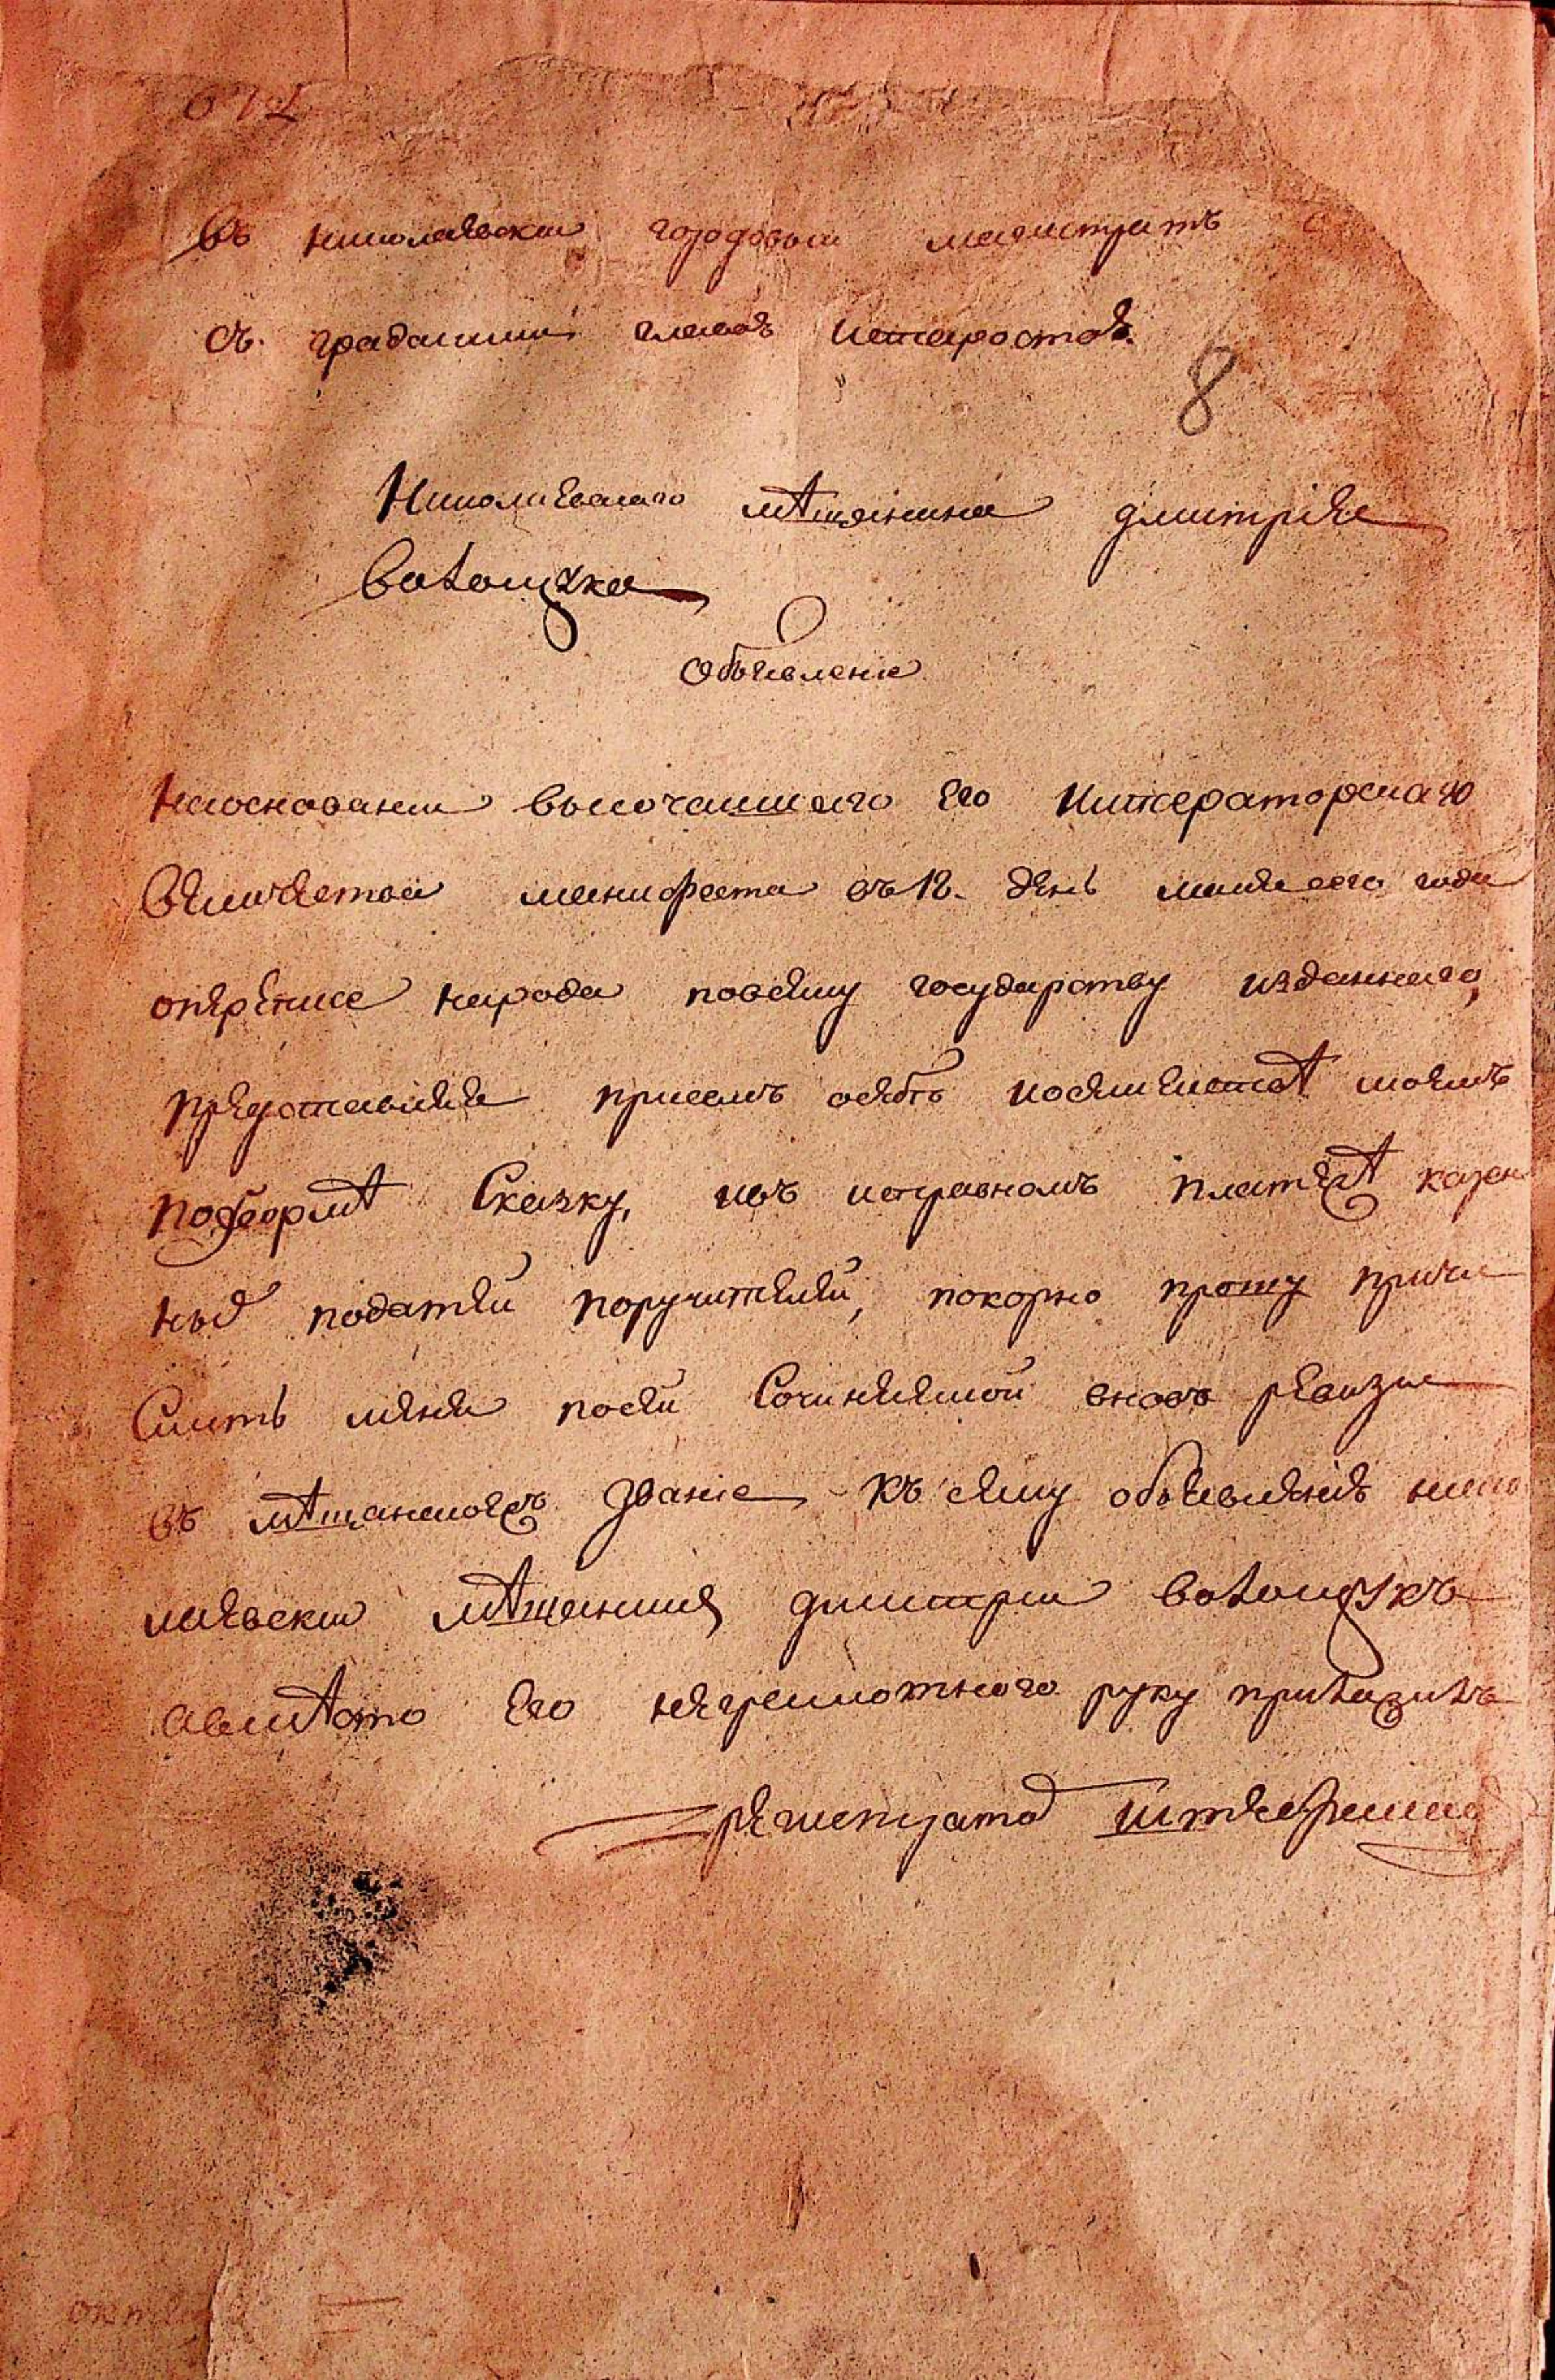 въ николаевски городовыи магистратъ
съ градскимъ главою истаростою
8
Николаевскаго мѣщанина дмитрия
волощука
Объявление
Наоснованиі высочаишаго Его Императорскаго
величества манифеста въ 18. день маия сего года
опереписе народа повсему государству изданнаго,
представляя присемъ осебѣ исемеиствѣ моемъ
подформѣ Сказку, иоъ исправномъ платежѣ казен
ныхъ податеи поручителеи, покорно прошу причи
слить меня посеи Сочиняемои вновь ревизіи
въ мѣщанское званіе къ сему объявленію нико
лаевски мѣщанинъ дмитри волощукъ
авмѣсто Его неграмотнаго руку приложилъ
регистраторъ